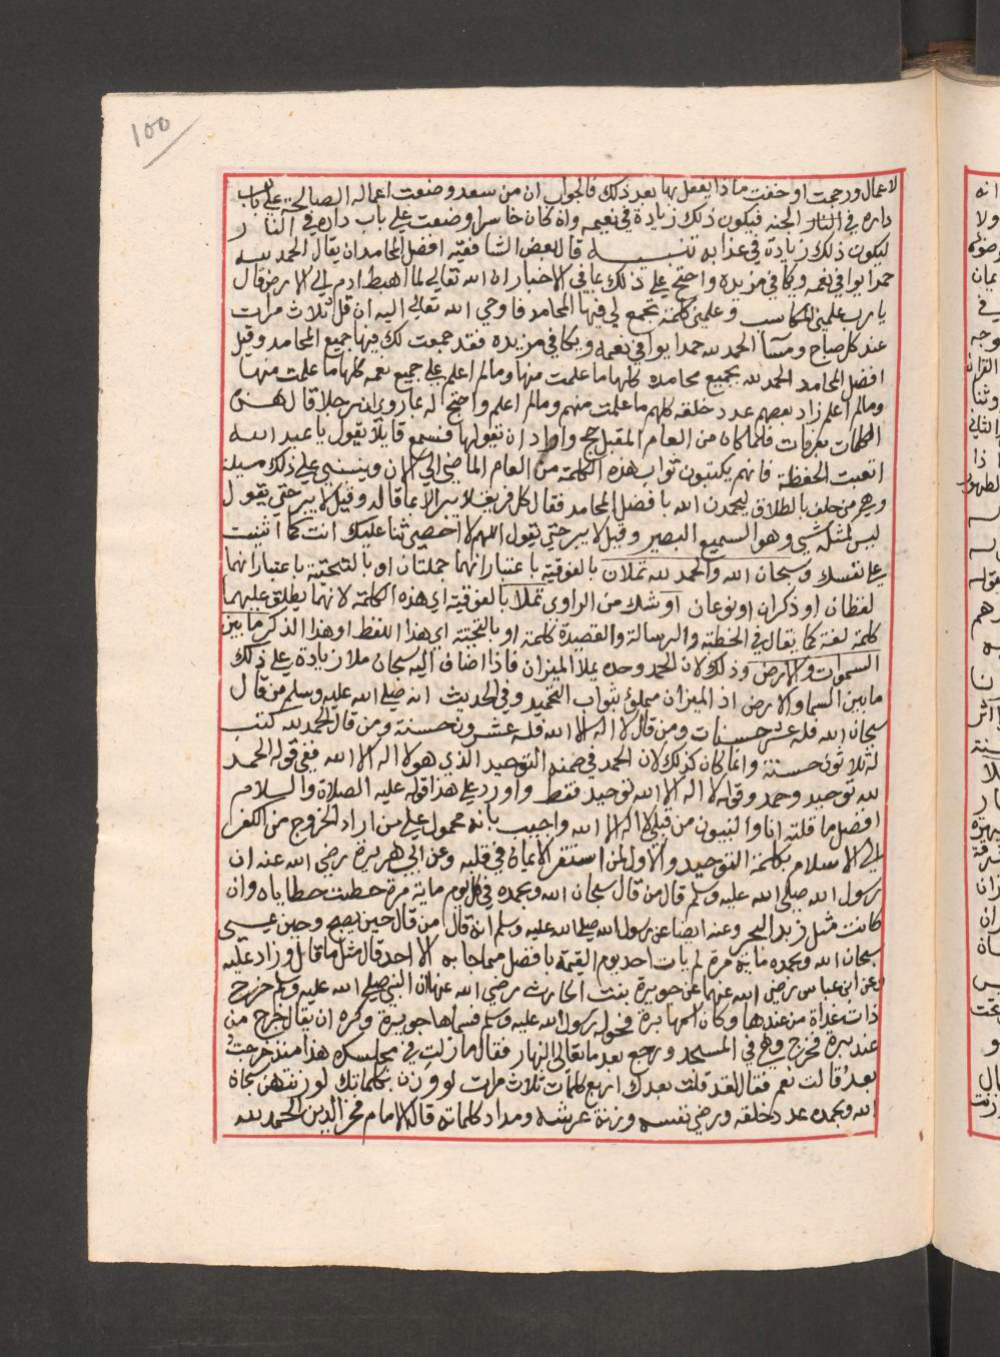 100
لاعمال ورجحت او خفت ماذا يفعل بها بعد ذلك فالجواب ان من سعد وضعت اعماله الصالحة على باب
داره في الجنه فيكون ذلك زيادة في نعيمه وان كان خاسرا وضعت على باب داره في النار
ليكون ذلك زيادة في عذابه تنبيه قال بعض الشافعيه افضل المحامد ان يقال الحمد لله
حمدا يوافي نعمه ويكافي مزيده واحتج على ذلك بما في الاخبار ان الله تعالى لما اهبط ادم الى الارض قال
يارب علمني المكاسب وعلمني كلمة تجمع لي فيها المحامد فاوحي الله تعالى اليه ان قل ثلاث مرات
عند كل صباح ومسآ الحمد لله حمدا يوافي نعمه ويكافي مزيده فقد جمعت لك فيها جميع المحامد وقيل
افضل المحامد الحمد لله بجميع محامده كلها ما علمت منها ومالم اعلم على جميع نعمه كلها ما علمت منها
ومالم اعلم زاد بعضهم عدد خلقه كلهم ما علمت منهم ومالم اعلم واحتج له بما روي ان رجلا قال هذه
الكلمات بعرفات فلما كان من العام المقبل حج واراد ان يقولها فسمع قايلا يقول يا عبد الله
اتعبت الحفظة فانهم يكتبون ثواب هذه الكلمة من العام الماضي الى الان وينبني على ذلك مسيلة
وهي من حلف بالطلاق ليحمدن الله بافضل المحامد فقال كل فريق لا يبر الا بما قاله وقيل لا يبر حتى يقول
ليس كمثله شي وهو السميع البصير وقيل لا يبر حتى يقول اللهم لا احصي ثنا عليك انت كما اثنيت
على نفسك وسبحان الله والحمد لله تملان بالفوقية باعتبار انهما جملتان او بالتحتية باعتبار انهما
لفظان او ذكران او نوعان او شك من الراوي تملا بالفوقية اي هذه الكلمة لانهما يطلق عليهما
كلمة لغة كما يقال في الخطبة والرسالة والقصيدة كلمة او بالتحتية اي هذا اللفظ او هذا الذكر ما بين
السموات والارض وذلك لان الحمد وحده يملا الميزان فاذا اضاف اليه سبحان ملا زيادة على ذلك
ما بين السما والارض اذ الميزان مملؤ بثواب التحميد وفي الحديث انه صلى الله عليه وسلم من قال
سبحان الله فله عشر حسنات ومن قال لا اله الا الله فله عشرون حسنة ومن قال الحمد لله كتب
له ثلاثون حسنة وانما كان كذلك لان الحمد في ضمنه التوحيد الذي هو لا اله الا الله ففي قوله الحمد
لله توحيد وحمد وقوله لا اله الا الله توحيد فقط واورد على هذا قوله عليه الصلاة والسلام
افضل ما قلته انا والنبيون من قبلي لا اله الا الله واجيب بانه محمول على من اراد الخروج من الكفر
الى الاسلام بكلمة التوحيد والاول لمن استقر الايمان في قلبه وعن ابي هريرة رضي الله عنه ان
رسول الله صلى الله عليه وسلم قال من قال سبحان الله وبحمده في كل يوم ماية مرة حطت خطاياه وان
كانت مثل زبد البحر وعنه ايضا عن رسول الله صلى الله عليه وسلم انه قال من قال حين يصبح وحين يمسي
سبحان الله وبحمده ماية مرة لم يات احد يوم القيمة بافضل مما جا به الا احد قال مثل ما قال او زاد عليه
وعن ابن عباس رضي الله عنهما عن جويرة بنت الحارث رضي الله عنها ان النبي صلى الله عليه وسلم خرج
ذات غداة من عندها وكان اسمها برة فحوله رسول الله عليه وسلم فسماها جويرة وكره ان يقال خرج من
عند برة فخرج وهي في المسجد ورجع بعد ما تعالى النهار فقال ما زلت في مجلسك هذا منذ خرجت
بعد قالت نعم فقال لقد قلت بعدك اربع كلمات ثلاث مرات لو وزن بكلماتك لوزنتهن سبحان
الله وبحمده عدد خلقه ورضي نفسه وزنة عرشه ومداد كلماته قال الامام فخر الدين الحمد لله